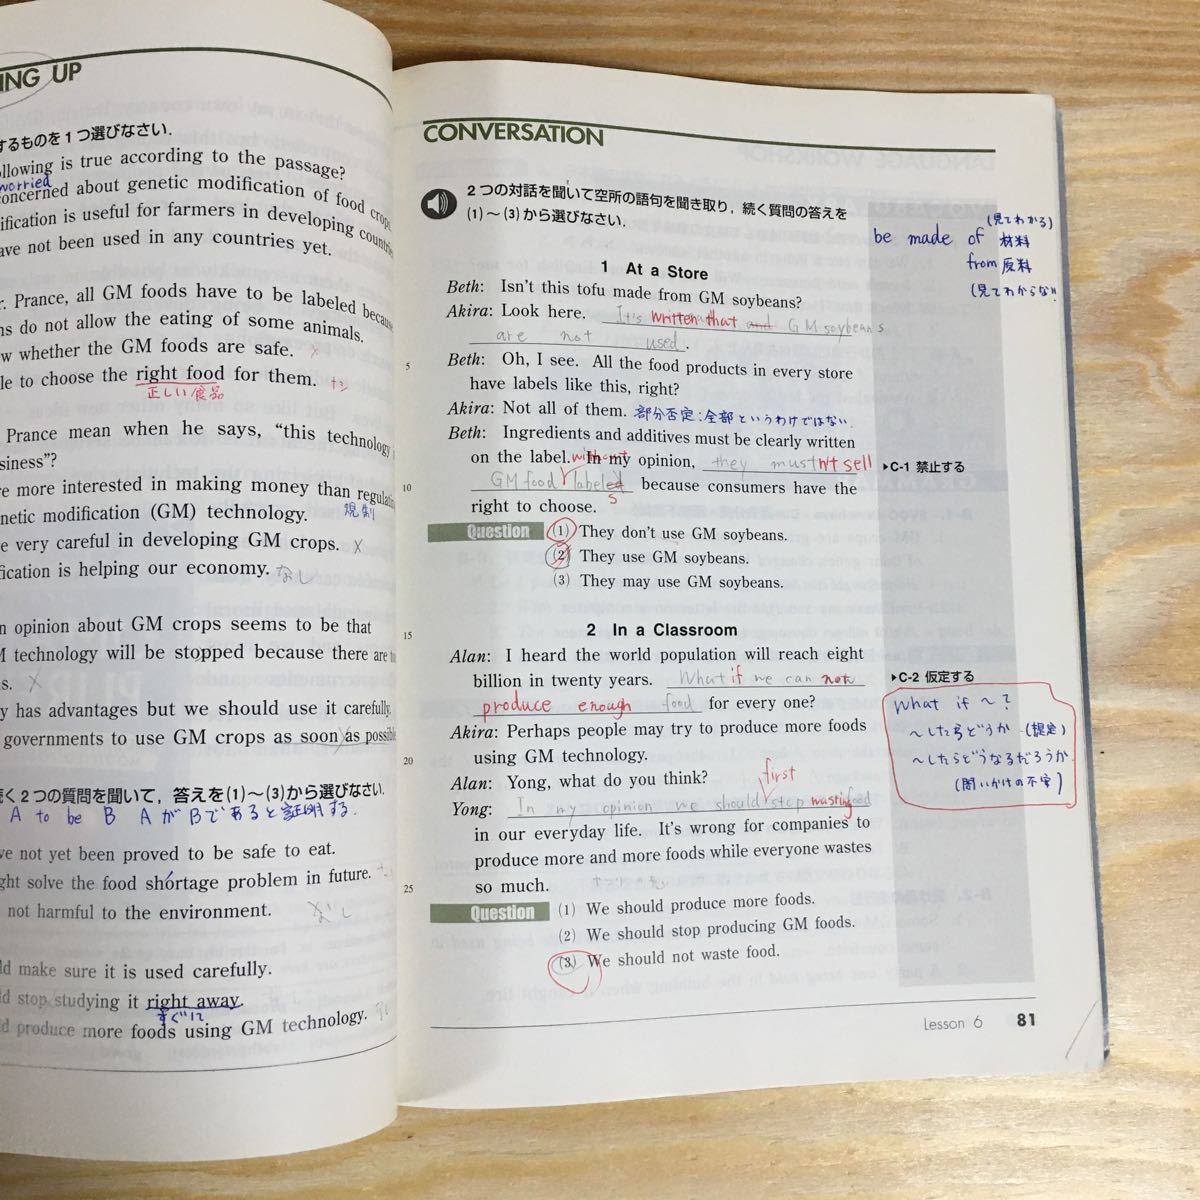 ING UP
するものを1つ選びなさい.
ollowing is true according to the passage?
worried
concerned about genetic modification of food crops.
ification is useful for farmers in developing countries
ave not been used in any countries yet.
r. Prance, all GM foods have to be labeled because
ns do not allow the eating of some animals.
w whether the GM foods are safe. ×
le to choose the right food for them.
正しい食品
Prance mean when he says, “this technology i
siness”?
re more interested in making money than regulating
netic modification (GM) technology.
規制
e very careful in developing GM crops. ×
fication is helping our economy. なし
n opinion about GM crops seems to be that
M technology will be stopped because there are
s. ×
y has advantages but we should use it carefully.
governments to use GM crops as soon as possible
続く2つの質問を聞いて，答えを(1)〜(3)から選びなさい.
A to be B AがBであると証明する.
ve not yet been proved to be safe to eat.
ght solve the food shortage problem in future.
not harmful to the environment. なし
ld make sure it is used carefully.
ld stop studying it right away.
すぐに
d produce more foods using GM technology.
CONVERSATION
2つの対話を聞いて空所の語句を聞き取り，続く質問の答えを
(1)〜(3)から選びなさい.
(見てわかる)
be made of 材料
from 原料
(見てわからない
1 At a Store
Beth: Isn't this tofu made from GM soybeans?
Akira: Look here. It's written that and GM soybeans
are not used.
5
Beth: Oh, I see. All the food products in every store
have labels like this, right?
Akira: Not all of them. 部分否定：全部というわけではない.
Beth: Ingredients and additives must be clearly written
without
on the label. In my opinion, they mustn't sell
▶C-1 禁止する
10
GM food labeled because consumers have the
s
right to choose.
Question (1) They don't use GM soybeans.
(2) They use GM soybeans.
(3) They may use GM soybeans.
2 In a Classroom
15
Alan: I heard the world population will reach eight
billion in twenty years. What if we can not
▶C-2 仮定する
produce enough food for every one?
What if 〜?
〜したらどうか (提定)
〜したらどうなるだろうか
(問いかけの不安)
Akira: Perhaps people may try to produce more foods
20
using GM technology.
Alan: Yong, what do you think?
first
Yong: In my opinion we should stop wasting food
in our everyday life. It's wrong for companies to
produce more and more foods while everyone wastes
25
so much.
Question (1) We should produce more foods.
(2) We should stop producing GM foods.
(3) We should not waste food.
Lesson 6 81